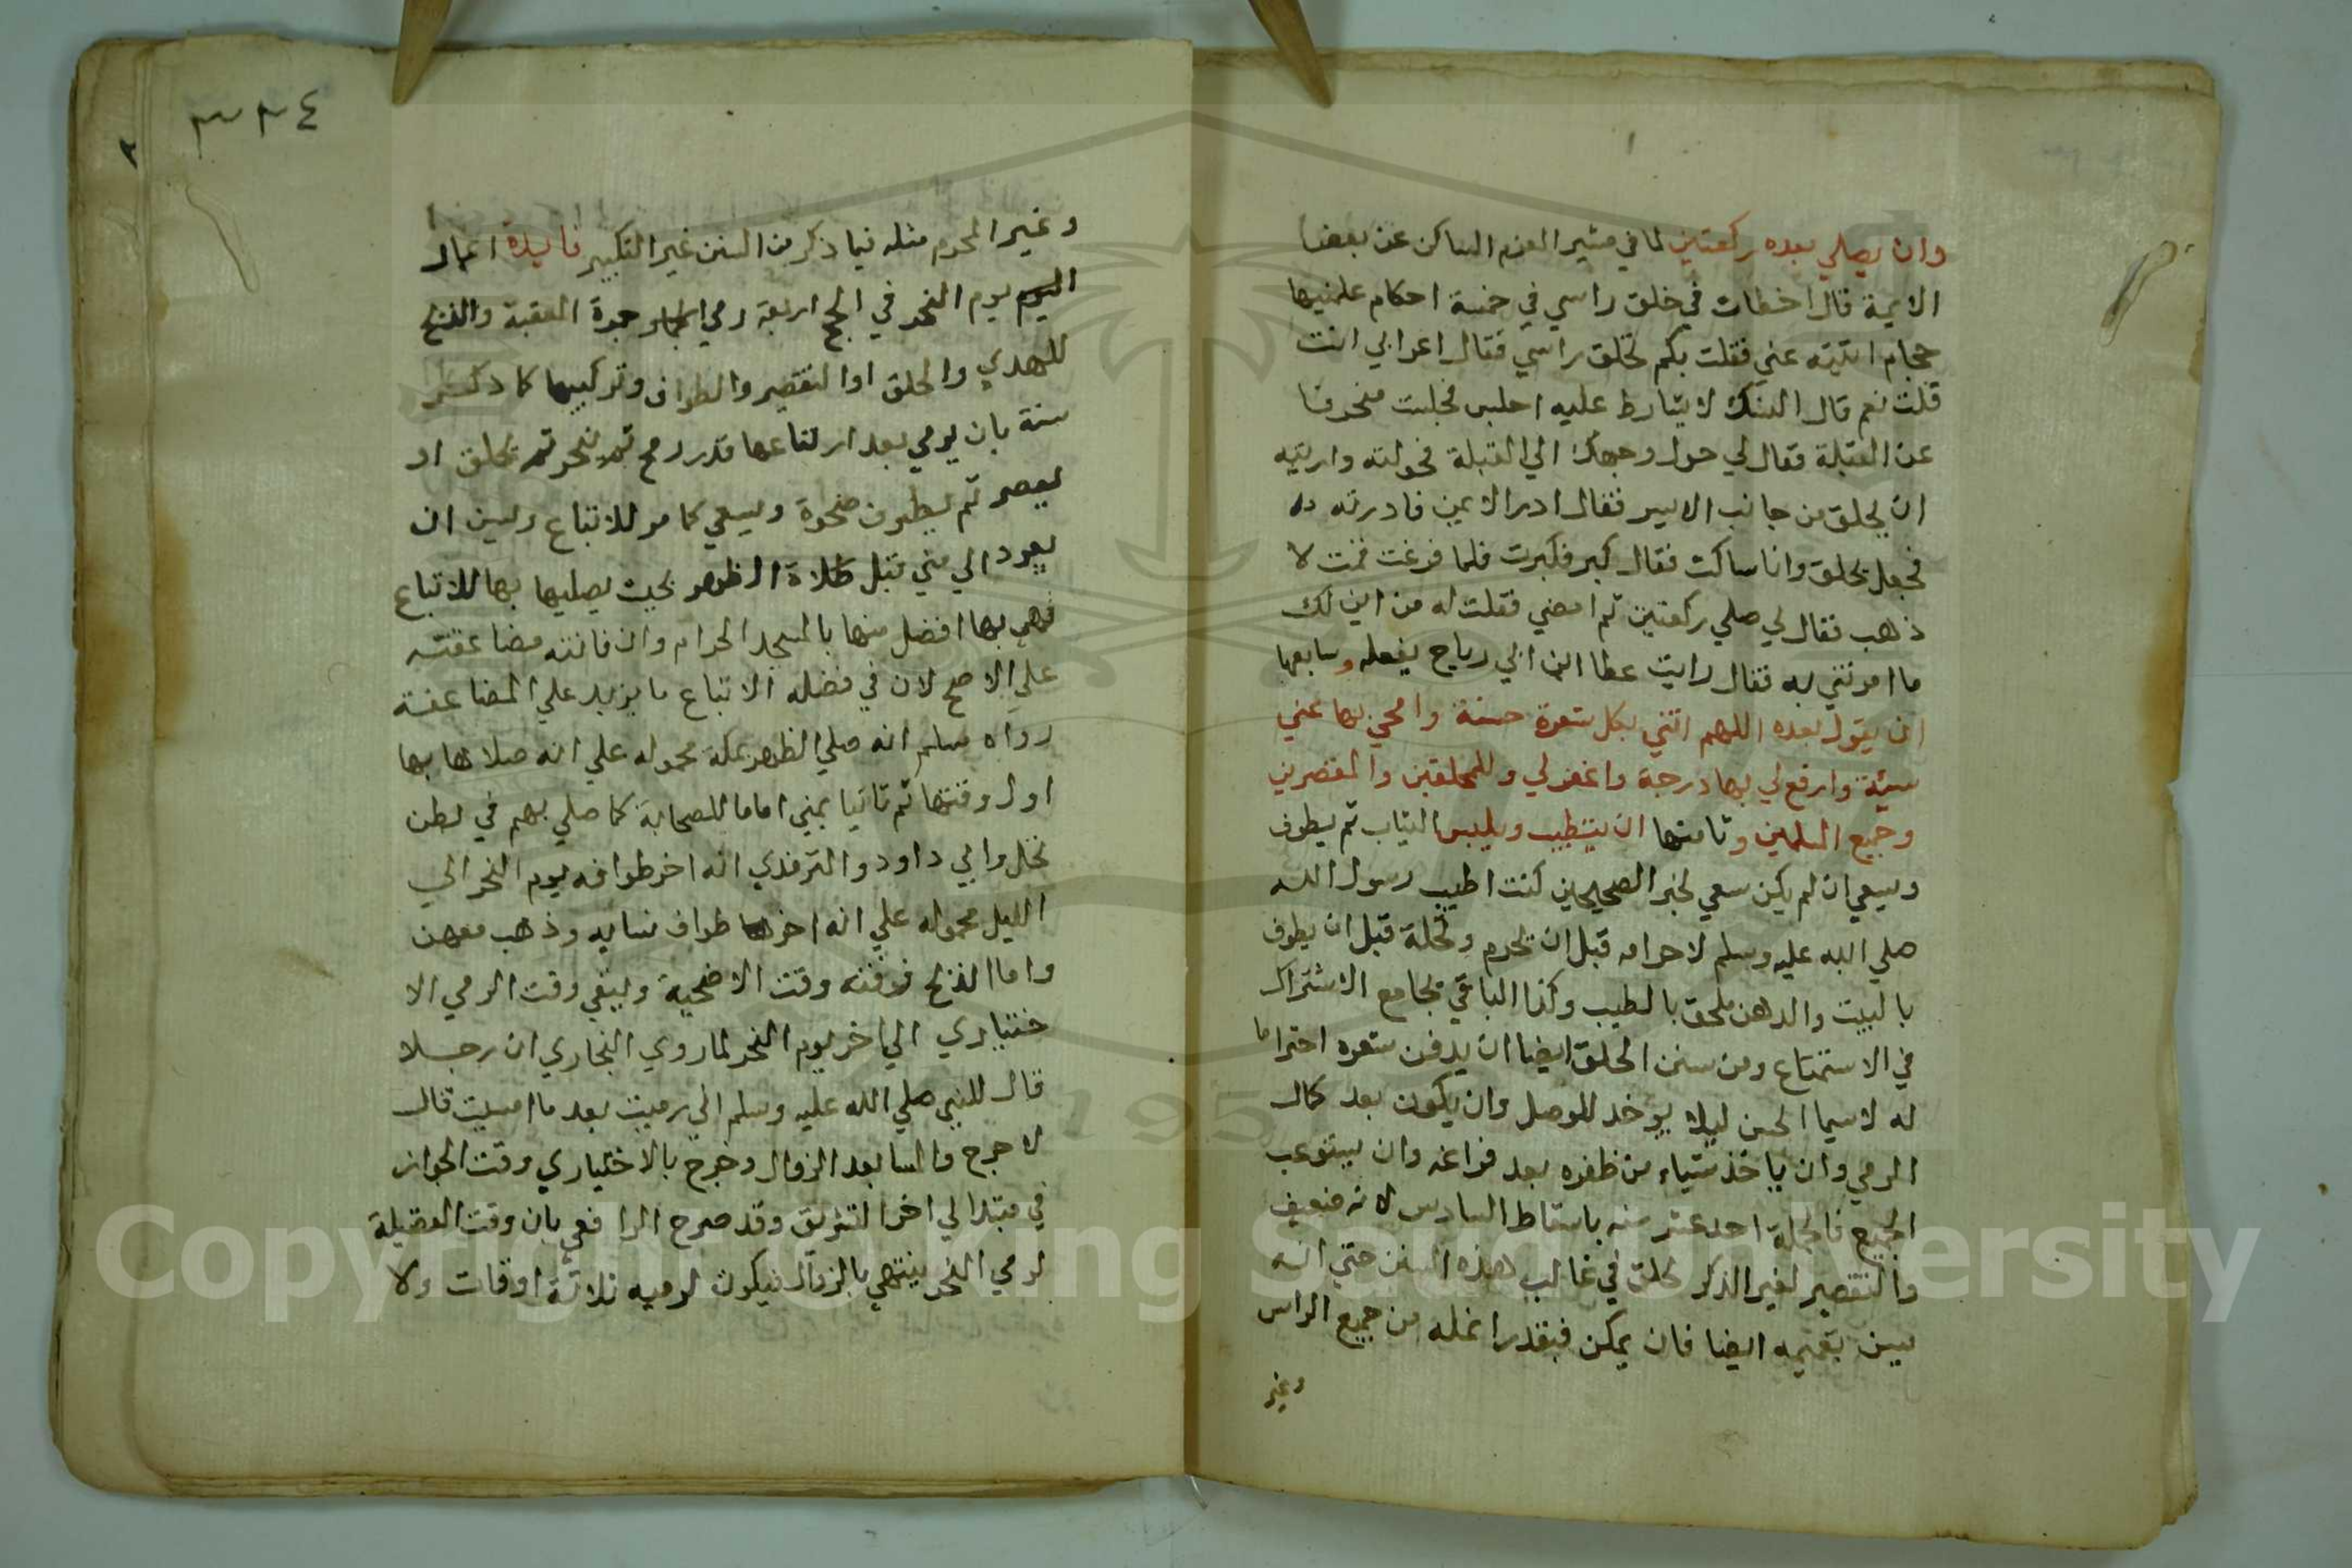 وان يصلي بعده ركعتين لما في مثير العزم الساكن عن بعض
الايمة قال اخطات في حلق راسي في خمسة احكام علمنيها
حجام اتيته عني فقلت بكم تحلق راسي فقال اعرابي انت
قلت نعم قال النسك لا يشارط عليه اجلس فجلست منحرفا
عن القبلة فقال لي حول وجهك الي القبلة فحولته واريته
ان يحلق من جانب الايسر فقال ادر الايمن فادرته
فجعل يحلق وانا ساكت فقال كبر فكبرت فلما فرغت قمت لا
ذهب فقال لي صلي ركعتين ثم امضي فقلت له من اين لك
ما امرتني به فقال رايت عطا ابن ابي رباح يفعله وسابعها
ان يقول بعده اللهم اتني بكل شعرة حسنة وامحي بها عني
سيئة وارفع لي بها درجة واغفر لي وللمحلقين والمقصرين
وجميع المسلمين وثامنها ان يتطيب ويلبس الثياب ثم يطوف
ويسعي ان لم يكن سعي لخبر الصحيحين كنت اطيب رسول الله
صلي الله عليه وسلم لاحرامه قبل ان يحرم ولحله قبل ان يطوف
بالبيت والدهن ملحق بالطيب وكذا الباقي بجامع الاشتراك
في الاستمتاع ومن سنن الحلق ايضا ان يدفن شعره احتراما
له لاسيما الحسن ليلا يوخذ للوصل وان يكون بعد كمال
الرمي وان ياخذ شياء من ظفره بعد فراغه وان يستوعب
الجميع فالجملة احد عشر سنه باسقاط السادس لانه ضعيف
والتقصير لغير الذكر كحلق في غالب هذه السنن حتي انه
يسن تعميمه ايضا فان يمكن فبقدر انمله من جميع الراس
وغير
٣٢٤
٢
وغير المحرم مثله فيما ذكر من السنن غير التكبير فايدة اعمال
اليوم يوم النحر في الحج اربعة رمي الجمار جمرة العقبة والذبح
للهدي والحلق او التقصير والطواف وتركيبها كما ذكر
سنة بان يرمي بعد ارتفاعها قدر رمح ثم ينحر ثم يحلق او
يقصر ثم يطوف ضحوة ويسعي كما مر للاتباع ويسن ان
يعود الي مني قبل صلاة الظهر بحيث يصليها بها للاتباع
فهي بها افضل منها بالمسجد الحرام وان فاتته مضاعفته
علي الاصح لان في فضله الاتباع ما يزيد علي المضاعفة
رواه مسلم انه صلي الظهر بمكة محموله علي انه صلاها بها
اول وقتها ثم ثانيا بمني اماما للصحابة كما صلي بهم في بطن
نخل وابي داود والترمذي انه اخر طوافه يوم النحر الي
الليل محموله علي انه اخر طواف نسايه وذهب معهن
واما الذبح فوقته وقت الاضحية ويبقي وقت الرمي الا
ختياري الي اخر يوم النحر لما روي البخاري ان رجلا
قال للنبي صلي الله عليه وسلم اني رميت بعد ما امسيت قال
لا حرج والمسا بعد الزوال وخرج بالاختياري وقت الجواز
فيمتد الي اخر التشريق وقد صرح الرافعي بان وقت الفضيلة
لرمي النحر ينتهي بالزوال فيكون لرميه ثلاثة اوقات ولا
Copyright © King Saud University
1957